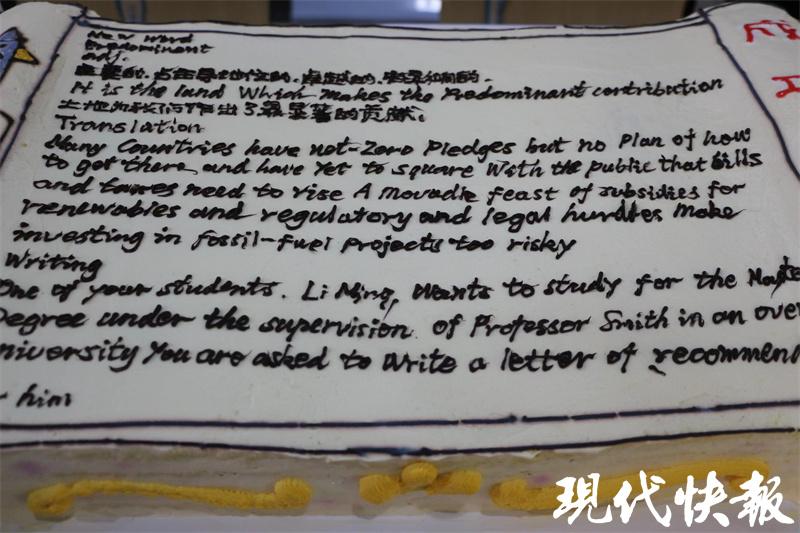 New word
Predominant
adj.
主要的，占主导地位的，卓越的，
It is the land Which makes the Predominant contribution
土地为我们作出了最显著的贡献。
Translation
Many Countries have net-Zero Pledges but no Plan of how
to get there and have Yet to square With the Public that bills
and taxes need to rise A Movadie feast of subsidies for
renewabies and regulatory and legal hurdles Make
investing in fossil-fuel Projects too risky
Writing
One of your students. Li Ming, Wants to study for the Maste
Degree under the supervision of Professor Smith in an over
niversity You are asked to Write a letter of recommen
him
现代快報